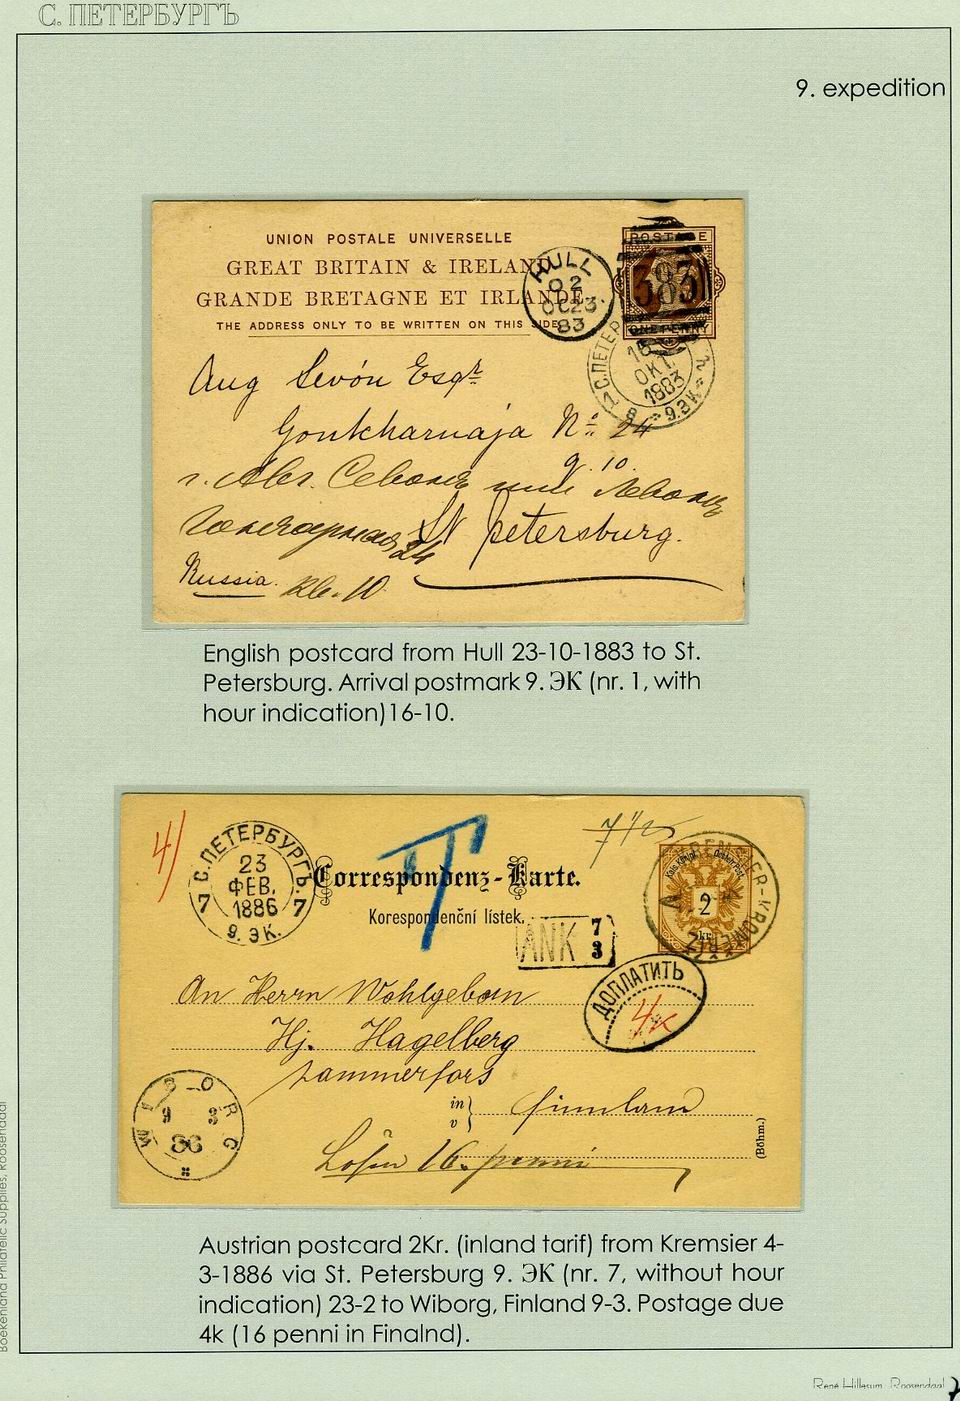 С. ПЕТЕРБУРГЪ
9. expedition
UNION POSTALE UNIVERSELLE
GREAT BRITAIN & IRELAND
GRANDE BRETAGNE ET IRLANDE
THE ADDRESS ONLY TO BE WRITTEN ON THIS SIDE
HULL
O 2
OC 23
83
POSTAGE
383
ONE PENNY
1 С. ПЕТЕР
16
ОКТ
1883
9. ЭК
Aug Sevón Esqr
Gontcharnaja No 24
q. 10.
г. Авг. Севонъ или Левонъ
Гончарная 24
St Petersburg.
Russia. кв. 10
English postcard from Hull 23-10-1883 to St.
Petersburg. Arrival postmark 9. ЭК (nr. 1, with
hour indication)16-10.
4)
С. ПЕТЕРБУРГЪ.
23
ФЕВ.
1886
7 7
9. ЭК.
T
7 1/2
Correspondenz-Karte.
Korespondenční lístek.
KREMSIER-KROMĚŘÍŽ
2
kr.
ANK 7
3
ДОПЛАТИТЬ
4к
An Herrn Wohlgeborn
Hj. Hagelberg
Tammerfors
in
v
Finnland
Lösen 16. penni
(Böhm.)
WIBORG
9 3
86
Austrian postcard 2Kr. (inland tarif) from Kremsier 4-
3-1886 via St. Petersburg 9. ЭК (nr. 7, without hour
indication) 23-2 to Wiborg, Finland 9-3. Postage due
4k (16 penni in Finalnd).
Boekenland Philatelic Supplies, Roosendaal
René Hillesum, Roosendaal